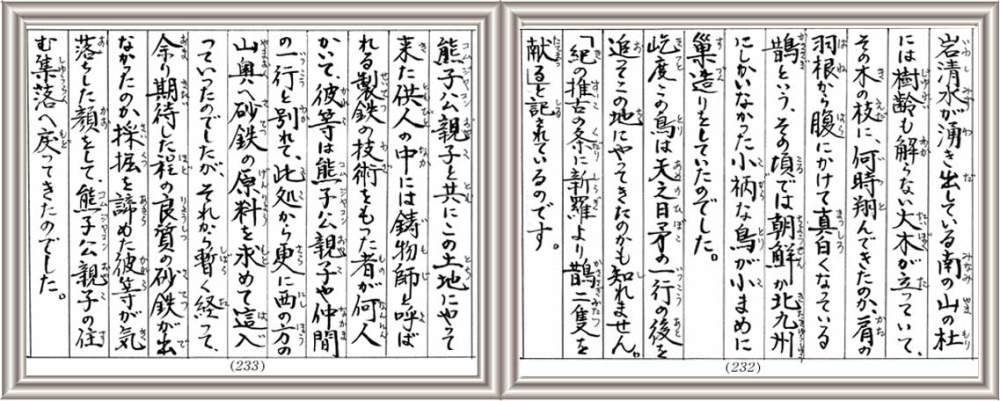 岩清水が湧き出している南の山の杜
には樹齢も解らない大木が立っていて、
その木の枝に、何時翔んできたのか、肩の
羽根から腹にかけて真白くなっている
鵲という、その頃では朝鮮か北九州
にしかいなかった小柄な鳥が小まめに
巣造りをしていたのでした。
屹度この鳥は天之日矛の一行の後を
追ってこの地にやってきたのかも知れません。
「紀の推古の条に新羅より鵲二隻を
献る」と記されているのです。
(232)
熊子公親子と共にこの土地にやって
来た供人の中には鋳物師と呼ば
れる製鉄の技術をもった者が何人
かいて、彼等は熊子公親子や仲間
の一行と別れて、此処から更に西の方の
山奥へ砂鉄の原料を求めて這入
っていったのでしたが、それから暫く経って、
余り期待した程の良質の砂鉄が出
なかたのか、採掘を諦めた彼等が気
落ちした顔をして、熊子公親子の住
む集落へ戻ってきたのでした。
(233)